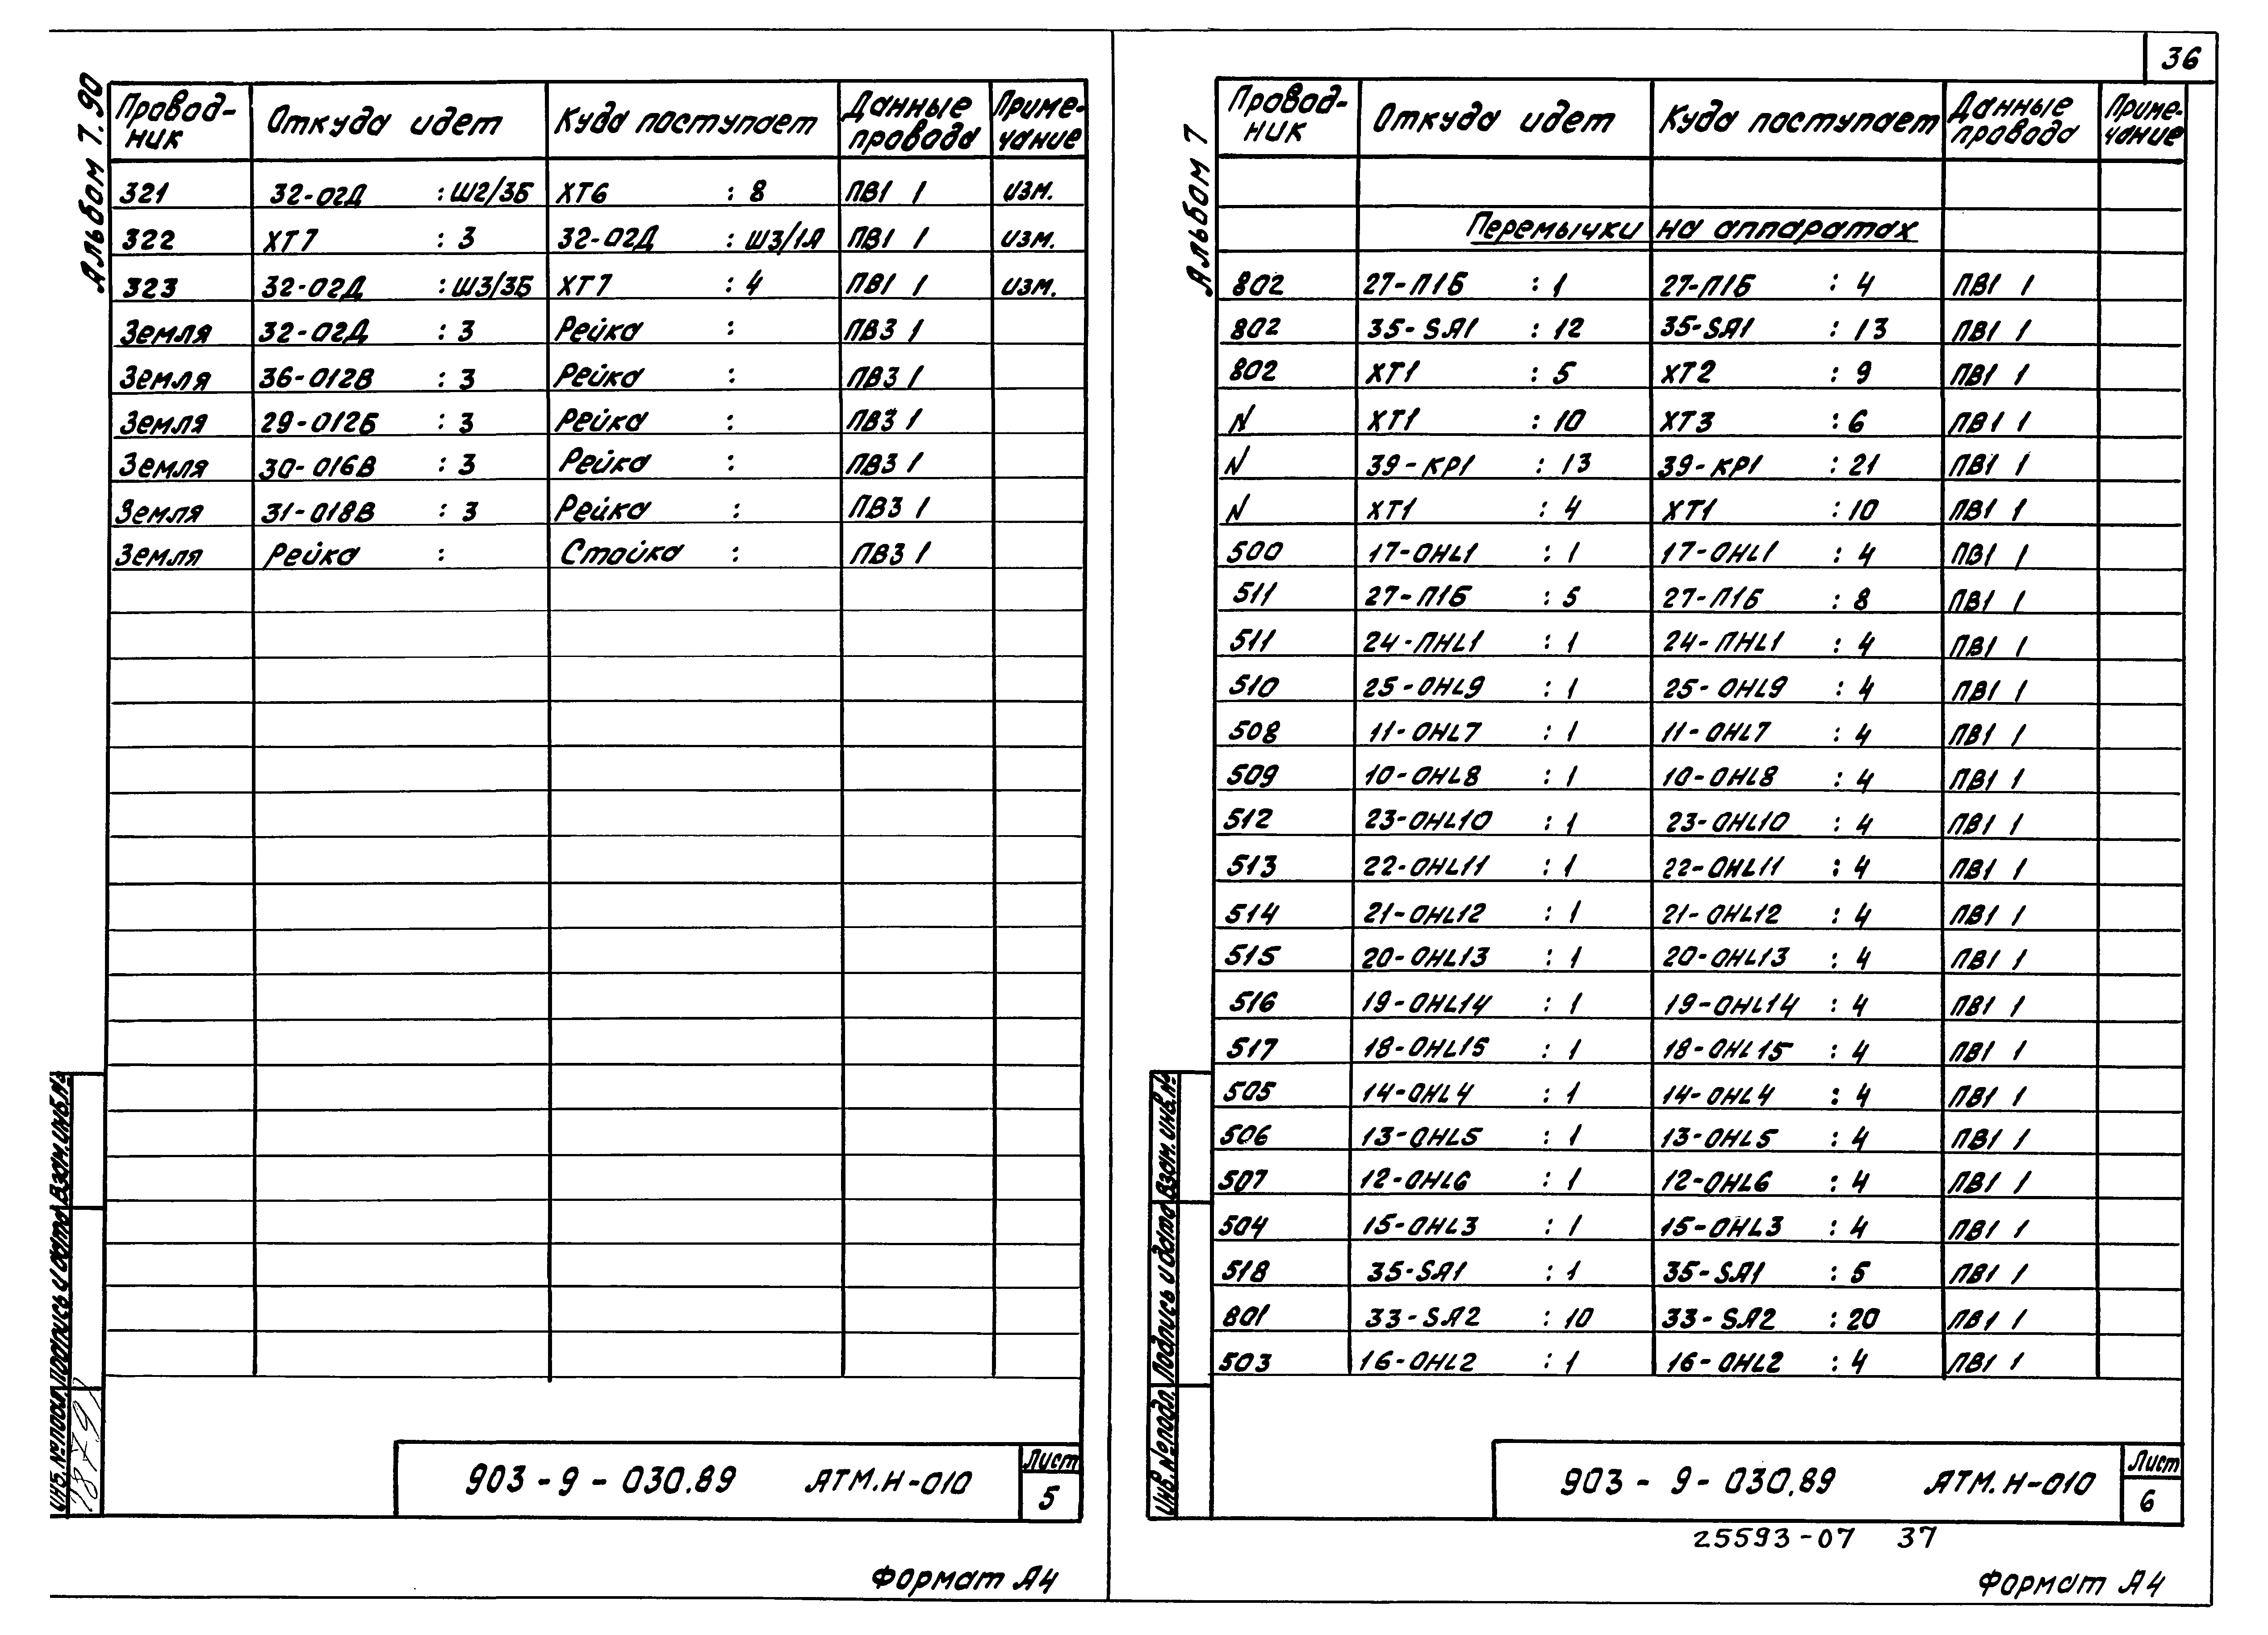 36
Альбом 7.90
Провод-ник Откуда идет Куда поступает Данные провода Приме-чание
321 32-02Д :Ш2/3Б ХТ6 : 8 ПВ1 1 изм.
322 ХТ7 : 3 32-02Д : Ш3/1А ПВ1 1 изм.
323 32-02Д :Ш3/3Б ХТ7 : 4 ПВ1 1 изм.
Земля 32-02Д : 3 Рейка : ПВ3 1
Земля 36-012В : 3 Рейка : ПВ3 1
Земля 29-012Б : 3 Рейка : ПВ3 1
Земля 30-016В : 3 Рейка : ПВ3 1
Земля 31-018В : 3 Рейка : ПВ3 1
Земля Рейка : Стойка : ПВ3 1
Инв.№ подл. Подпись и дата Взам.инв.№
903-9-030.89 АТМ.Н-010
Лист
5
Формат А4
Альбом 7
Провод-ник Откуда идет Куда поступает Данные провода Приме-чание
Перемычки на аппаратах
802 27-П1Б : 1 27-П1Б : 4 ПВ1 1
802 35-SA1 : 12 35-SA1 : 13 ПВ1 1
802 ХТ1 : 5 ХТ2 : 9 ПВ1 1
N ХТ1 : 10 ХТ3 : 6 ПВ1 1
N 39-КР1 : 13 39-КР1 : 21 ПВ1 1
N ХТ1 : 4 ХТ1 : 10 ПВ1 1
500 17-0HL1 : 1 17-0HL1 : 4 ПВ1 1
511 27-П1Б : 5 27-П1Б : 8 ПВ1 1
511 24-ПHL1 : 1 24-ПHL1 : 4 ПВ1 1
510 25-0HL9 : 1 25-0HL9 : 4 ПВ1 1
508 11-0HL7 : 1 11-0HL7 : 4 ПВ1 1
509 10-0HL8 : 1 10-0HL8 : 4 ПВ1 1
512 23-0HL10 : 1 23-0HL10 : 4 ПВ1 1
513 22-0HL11 : 1 22-0HL11 : 4 ПВ1 1
514 21-0HL12 : 1 21-0HL12 : 4 ПВ1 1
515 20-0HL13 : 1 20-0HL13 : 4 ПВ1 1
516 19-0HL14 : 1 19-0HL14 : 4 ПВ1 1
517 18-0HL15 : 1 18-0HL15 : 4 ПВ1 1
505 14-0HL4 : 1 14-0HL4 : 4 ПВ1 1
506 13-0HL5 : 1 13-0HL5 : 4 ПВ1 1
507 12-0HL6 : 1 12-0HL6 : 4 ПВ1 1
504 15-0HL3 : 1 15-0HL3 : 4 ПВ1 1
518 35-SA1 : 1 35-SA1 : 5 ПВ1 1
801 33-SA2 : 10 33-SA2 : 20 ПВ1 1
503 16-0HL2 : 1 16-0HL2 : 4 ПВ1 1
Инв.№ подл. Подпись и дата Взам.инв.№
903-9-030.89 АТМ.Н-010
Лист
6
25593-07 37
Формат А4